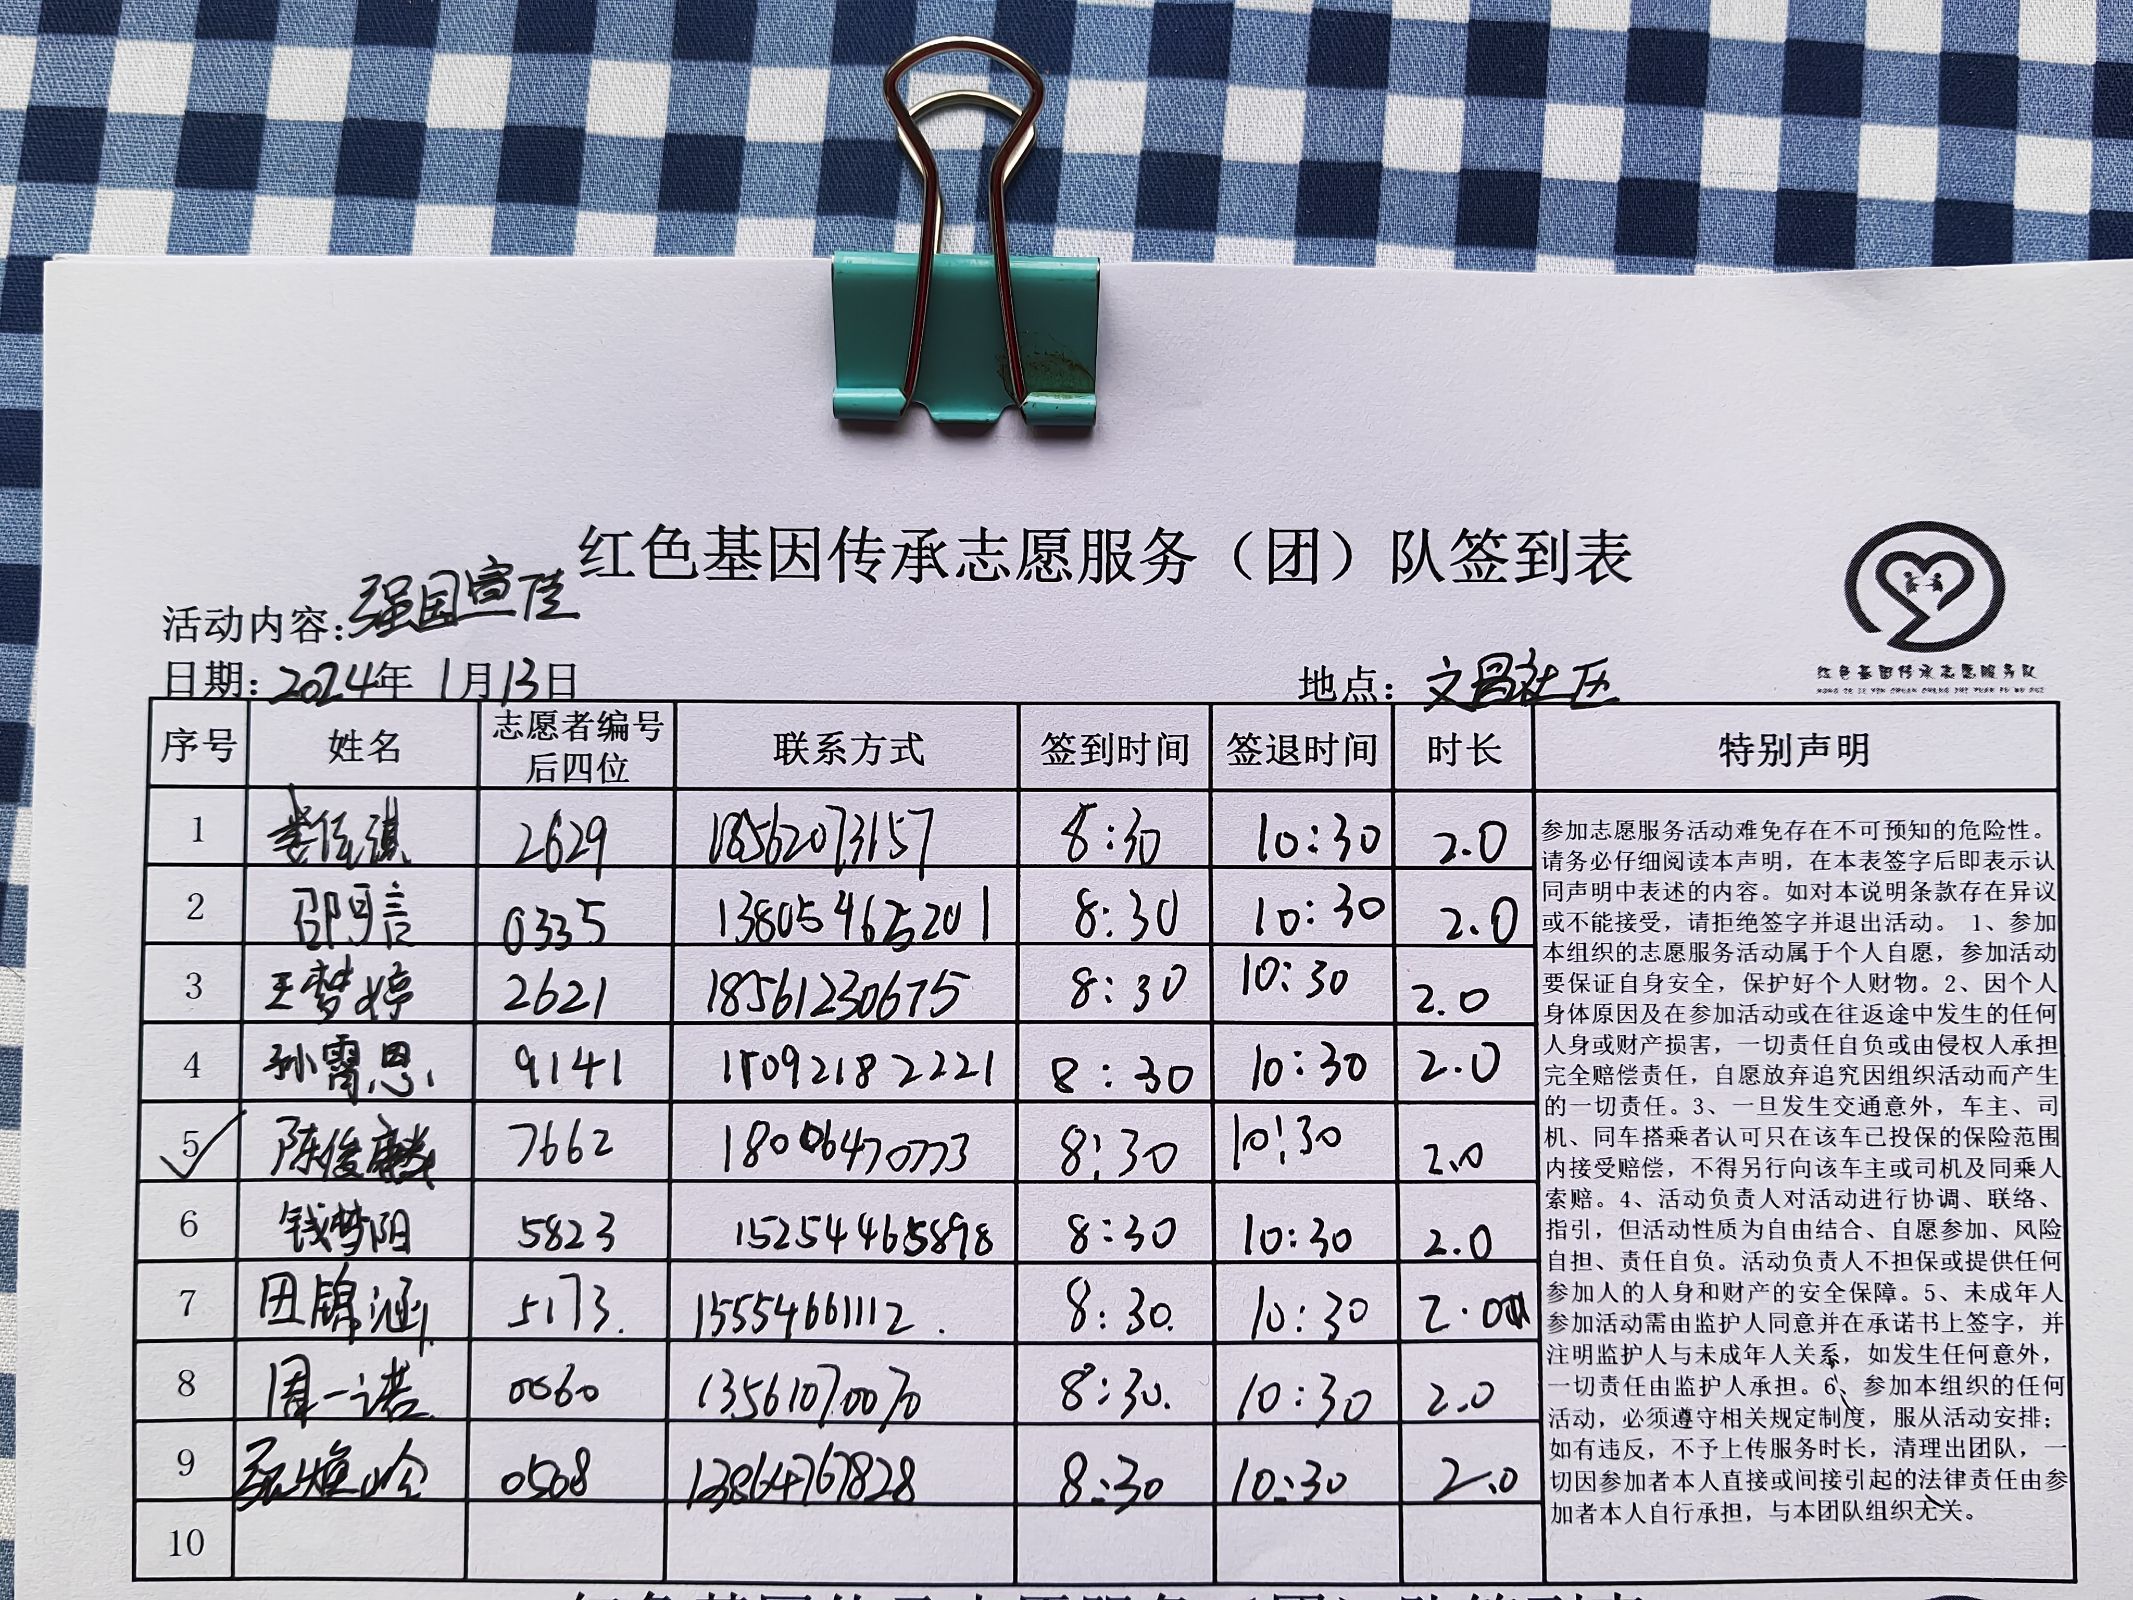 红色基因传承志愿服务（团）队签到表
活动内容：强国宣传
日期：2024年 1月13日 地点：文昌社区
红色基因传承志愿服务队
序号 姓名 志愿者编号后四位 联系方式 签到时间 签退时间 时长 特别声明
1 2629 18562073157 8:30 10:30 2.0
2 邵可言 0335 13805462201 8:30 10:30 2.0
3 王梦婷 2621 18561230675 8:30 10:30 2.0
4 孙霄恩 9141 15092182221 8:30 10:30 2.0
5 陈俊麟 7662 18006470773 8:30 10:30 2.0
6 钱梦阳 5823 15254465898 8:30 10:30 2.0
7 田锦涵 5173. 15554661112. 8:30. 10:30 2.0
8 周一诺 0060 13561070070 8:30. 10:30 2.0
9 0508 13864767828 8:30 10:30 2.0
10
参加志愿服务活动难免存在不可预知的危险性。
请务必仔细阅读本声明，在本表签字后即表示认
同声明中表述的内容。如对本说明条款存在异议
或不能接受，请拒绝签字并退出活动。 1、参加
本组织的志愿服务活动属于个人自愿，参加活动
要保证自身安全，保护好个人财物。2、因个人
身体原因及在参加活动或在往返途中发生的任何
人身或财产损害，一切责任自负或由侵权人承担
完全赔偿责任，自愿放弃追究因组织活动而产生
的一切责任。3、一旦发生交通意外，车主、司
机、同车搭乘者认可只在该车已投保的保险范围
内接受赔偿，不得另行向该车主或司机及同乘人
索赔。4、活动负责人对活动进行协调、联络、
指引，但活动性质为自由结合、自愿参加、风险
自担、责任自负。活动负责人不担保或提供任何
参加人的人身和财产的安全保障。5、未成年人
参加活动需由监护人同意并在承诺书上签字，并
注明监护人与未成年人关系，如发生任何意外，
一切责任由监护人承担。6、参加本组织的任何
活动，必须遵守相关规定制度，服从活动安排；
如有违反，不予上传服务时长，清理出团队，一
切因参加者本人直接或间接引起的法律责任由参
加者本人自行承担，与本团队组织无关。
红色基因传承志愿服务（团）队签到表